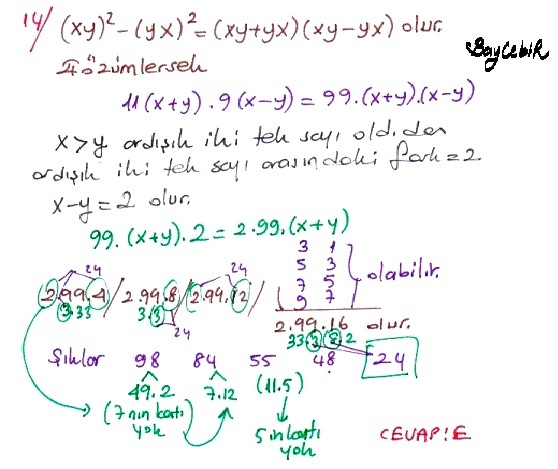 14/ (xy)² - (yx)² = (xy+yx)(xy-yx) olur.
BayCebiR
Çözümlersek
11(x+y) . 9(x-y) = 99.(x+y).(x-y)
x>y ardışık iki tek sayı old.dan
ardışık iki tek sayı arasındaki fark = 2
x-y=2 olur.
99. (x+y) . 2 = 2.99.(x+y)
3 1
5 3
7 5
9 7
olabilir.
24 24
2.99.4 / 2.99.8 / 2.99.12 / 2.99.16 olur.
3.33 3.3 24 33.3.8.2
Şıklar 98 84 55 48 24
49.2 7.12 (11.5)
(7 nin katı yok) 5 in katı yok
CEVAP:E